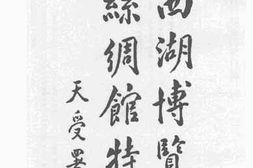 西湖博覽
絲綢館特
天受署